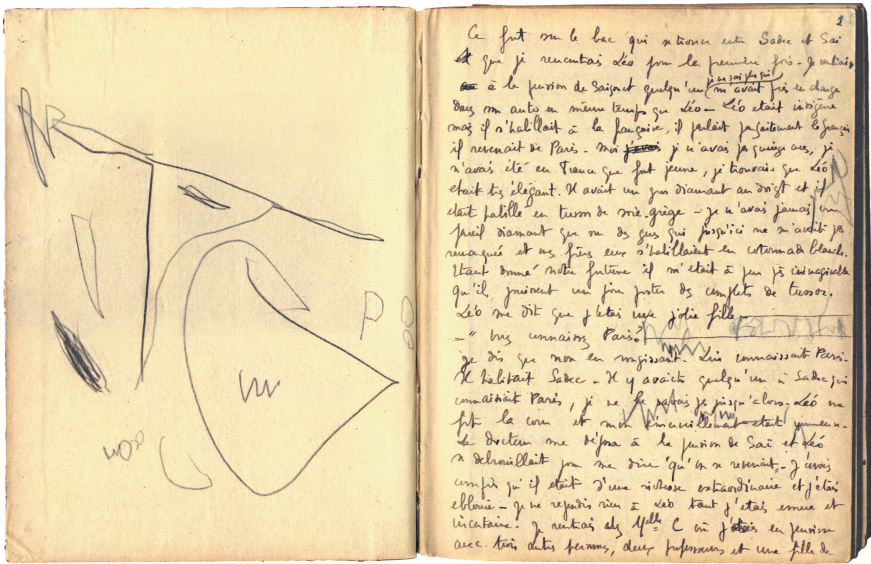 2
Ce fut sur le bac qui se trouve entre Sadec et Sai
que je rencontrai Léo pour la première fois. Je rentrais
à la pension de Saigon et quelqu'un (je ne sais plus qui) m'avait pris en charge
dans son auto en même temps que Léo — Léo était indigène
mais il s'habillait à la française, il parlait parfaitement le français
il revenait de Paris. Moi je n'avais pas quinze ans, je
n'avais été en France que fort jeune, je trouvais que Léo
était très élégant. Il avait un gros diamant au doigt et il
était habillé en tussor de soie grège — je n'avais jamais vu
pareil diamant que sur des gens qui jusqu'ici ne m'avait pas
remarquée et mes frères eux s'habillaient en cotonnade blanche.
Etant donné notre fortune il m'était à peu près inimaginable
qu'ils puissent un jour porter des complets de tussor.
Léo me dit que j'étais une jolie fille
— "Vous connaissez Paris?
je dis que non en rougissant. Lui connaissait Paris.
Il habitait Sadec. Il y avait quelqu'un à Sadec qui
connaissait Paris, je ne le savais pas jusqu'alors. Léo me
fit la cour et mon émerveillement était immense.
Le docteur me déposa à la pension de Sai et Léo
se débrouillait pour me dire "qu'on se reverrait". J'avais
compris qu'il était d'une richesse extraordinaire et j'étais
éblouie — je ne répondis rien à Léo tant j'étais émue et
incertaine. Je rentrais chez Melle C où j'étais en pension
avec trois autres personnes, deux professeurs et une fille de